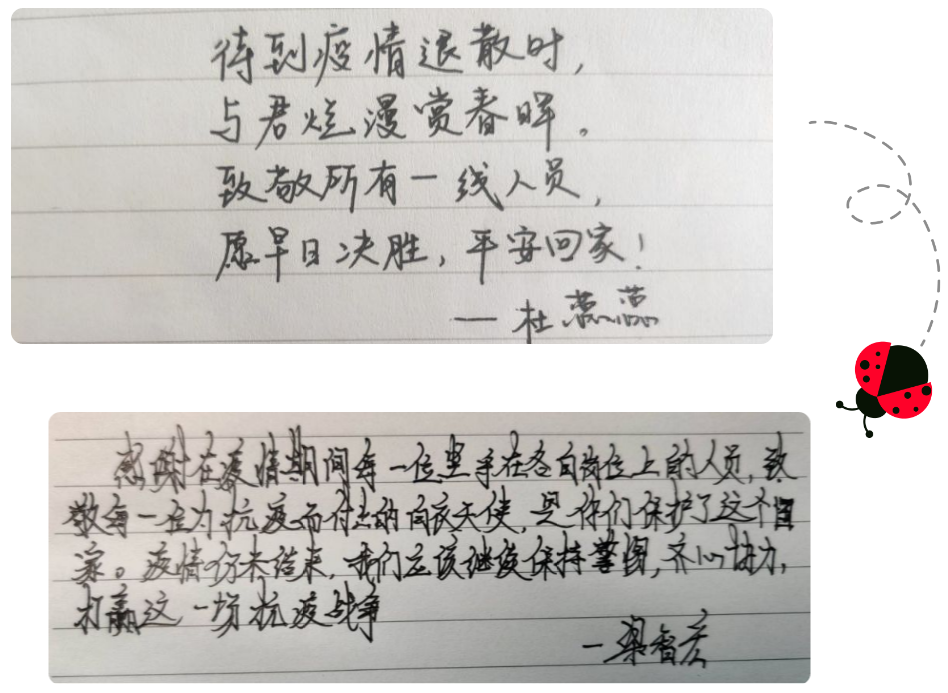 待到疫情退散时，
与君烂漫赏春晖。
致敬所有一线人员，
愿早日决胜，平安回家！
— 杜蕊蕊
感谢在疫情期间每一位坚守在各自岗位上的人员，致
敬每一位为抗疫而付出的白衣天使，是你们保护了这个国
家。疫情仍未结束，我们应该继续保持警惕，齐心协力，
打赢这一场抗疫战争
— 梁智彦